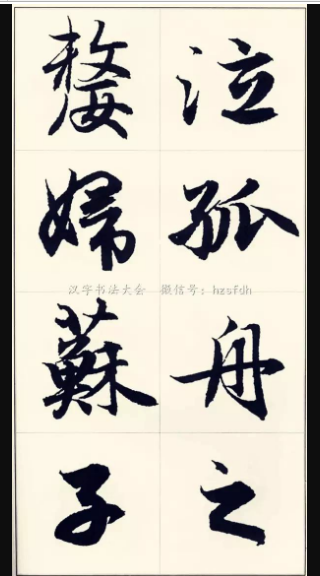 泣孤舟之
嫠婦蘇子
汉字书法大会 微信号：hzsfdh